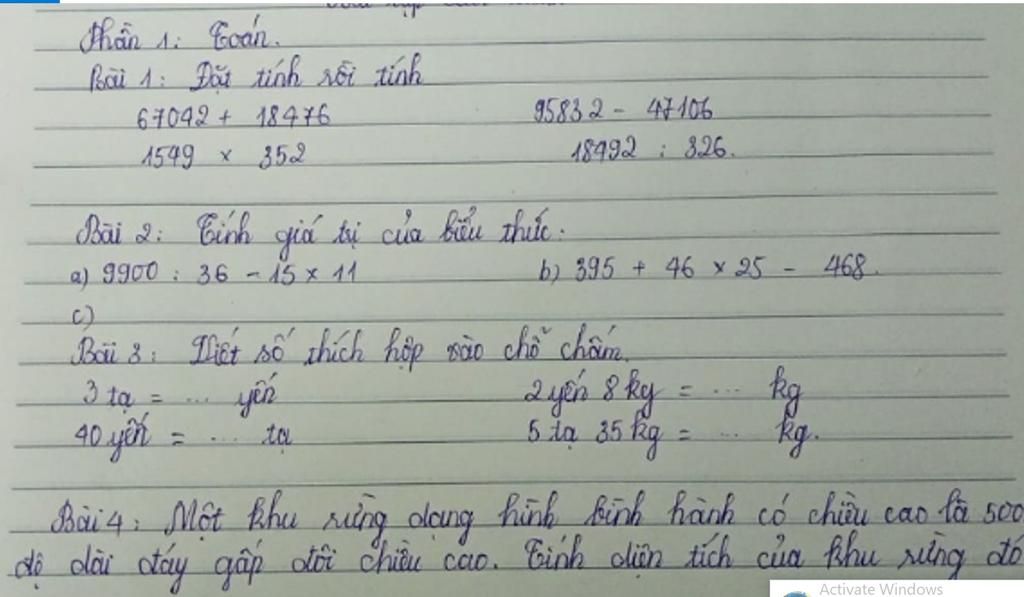 Phần 1: Toán.
Bài 1: Đặt tính rồi tính
67042 + 18476 95832 - 47106
1549 × 352 18492 : 326.
Bài 2: Tính giá trị của biểu thức.
a) 9900 : 36 - 15 × 11 b) 395 + 46 × 25 - 468.
c)
Bài 3: Viết số thích hợp vào chỗ chấm.
3 tạ = ... yến 2 yến 8 kg = ... kg
40 yến = ... tạ 5 tạ 35 kg = ... kg.
Bài 4: Một khu rừng dạng hình bình hành có chiều cao là 500
độ dài đáy gấp đôi chiều cao. Tính diện tích của khu rừng đó
Activate Windows